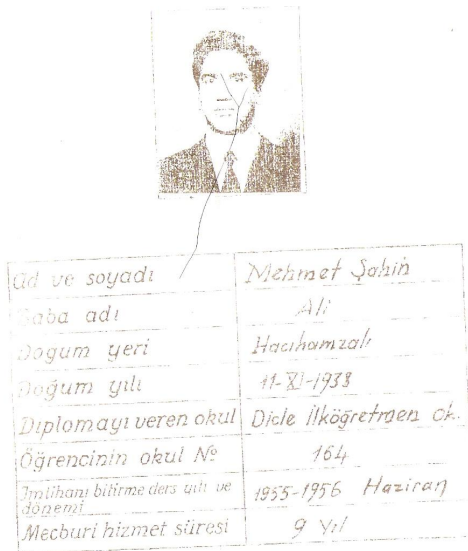 Ad ve soyadı Mehmet Şahin
Baba adı Ali
Doğum yeri Hacıhamzalı
Doğum yılı 11-XI-1938
Diplomayı veren okul Dicle İlköğretmen Ok.
Öğrencinin okul No 164
İmtihanı bitirme ders yılı ve 1955-1956 Haziran
dönemi
Mecburî hizmet süresi 9 Yıl